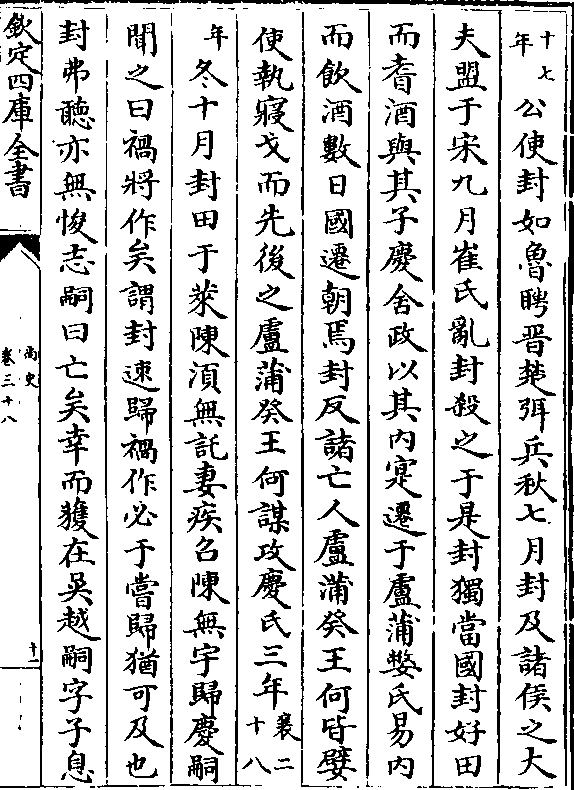 十七年　公使封如魯聘晉楚弭兵秋七月封及諸侯之大
夫盟于宋九月崔氏亂封殺之于是封獨當國封好田
而耆酒與其子慶舍政以其内寔遷于盧蒲嫳氏易内
而飲酒數日國遷朝焉封反諸亡人盧蒲癸王何皆嬖
使執寢戈而先後之盧蒲癸王何謀攻慶氏三年襄二十八
年冬十月封田于萊陳湏無託妻疾召陳無宇歸慶嗣
聞之曰禍將作矣謂封速歸禍作必于嘗歸猶可及也
封弗聽亦無悛志嗣曰亡矣幸而獲在吳越嗣字子息
欽定四庫全書
尚史
卷三十八
十一